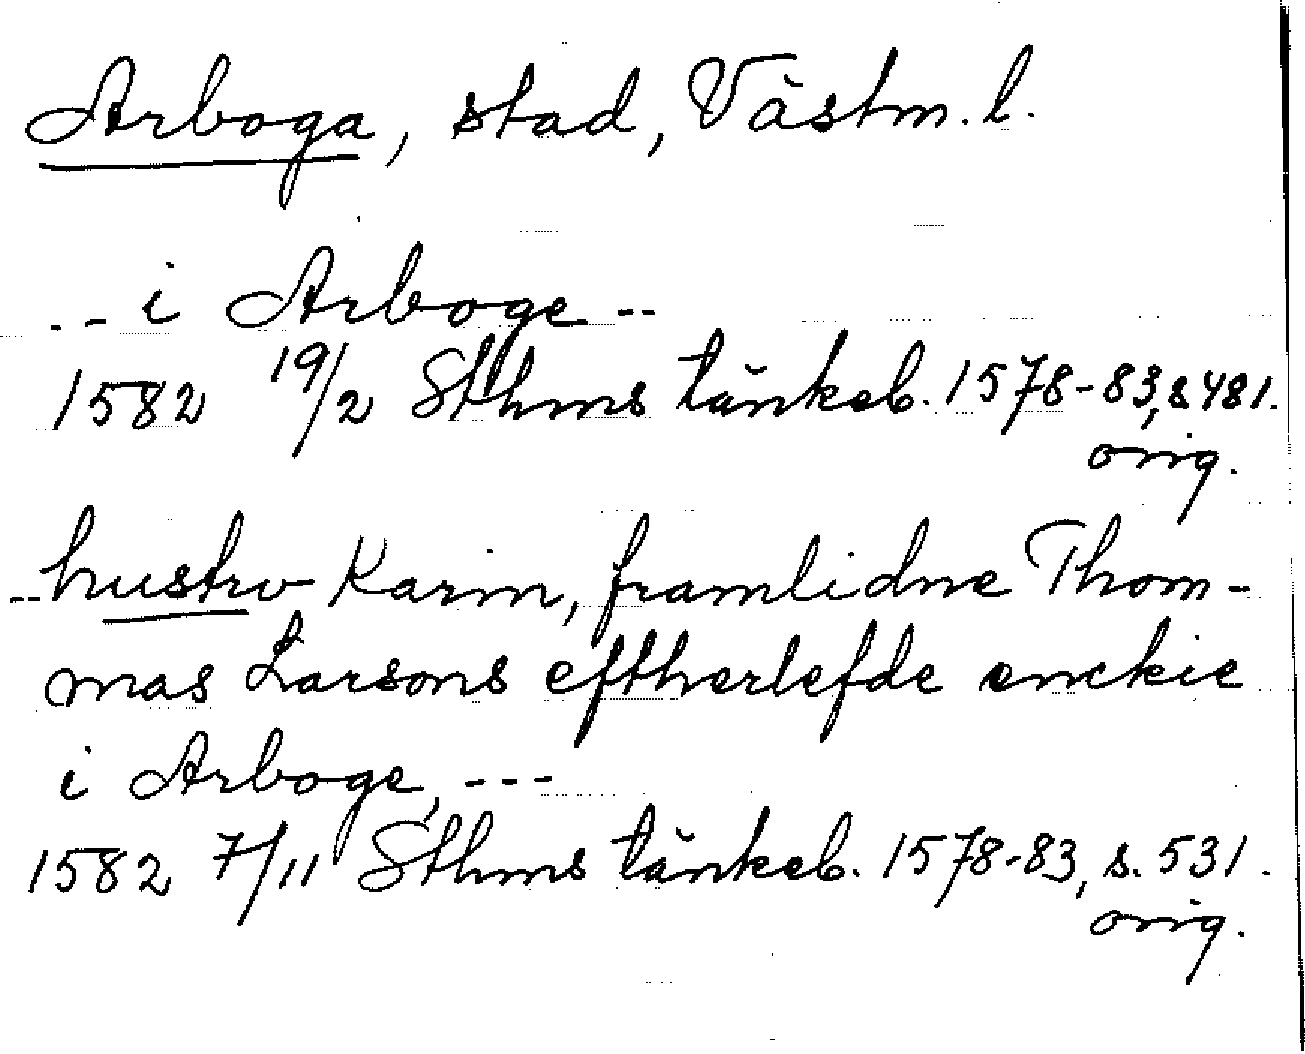 Arboga, stad, Västm. l.
-- i Arboge --
1582 19/2 Sthms tänkeb. 1578-83, s 481.
orig.
-- hustrv Karin, framlidne Thom-
mas Larsons eftherlefde enckie
i Arboge, ---
1582 7/11 Sthms tänkeb. 1578-83, s. 531.
orig.